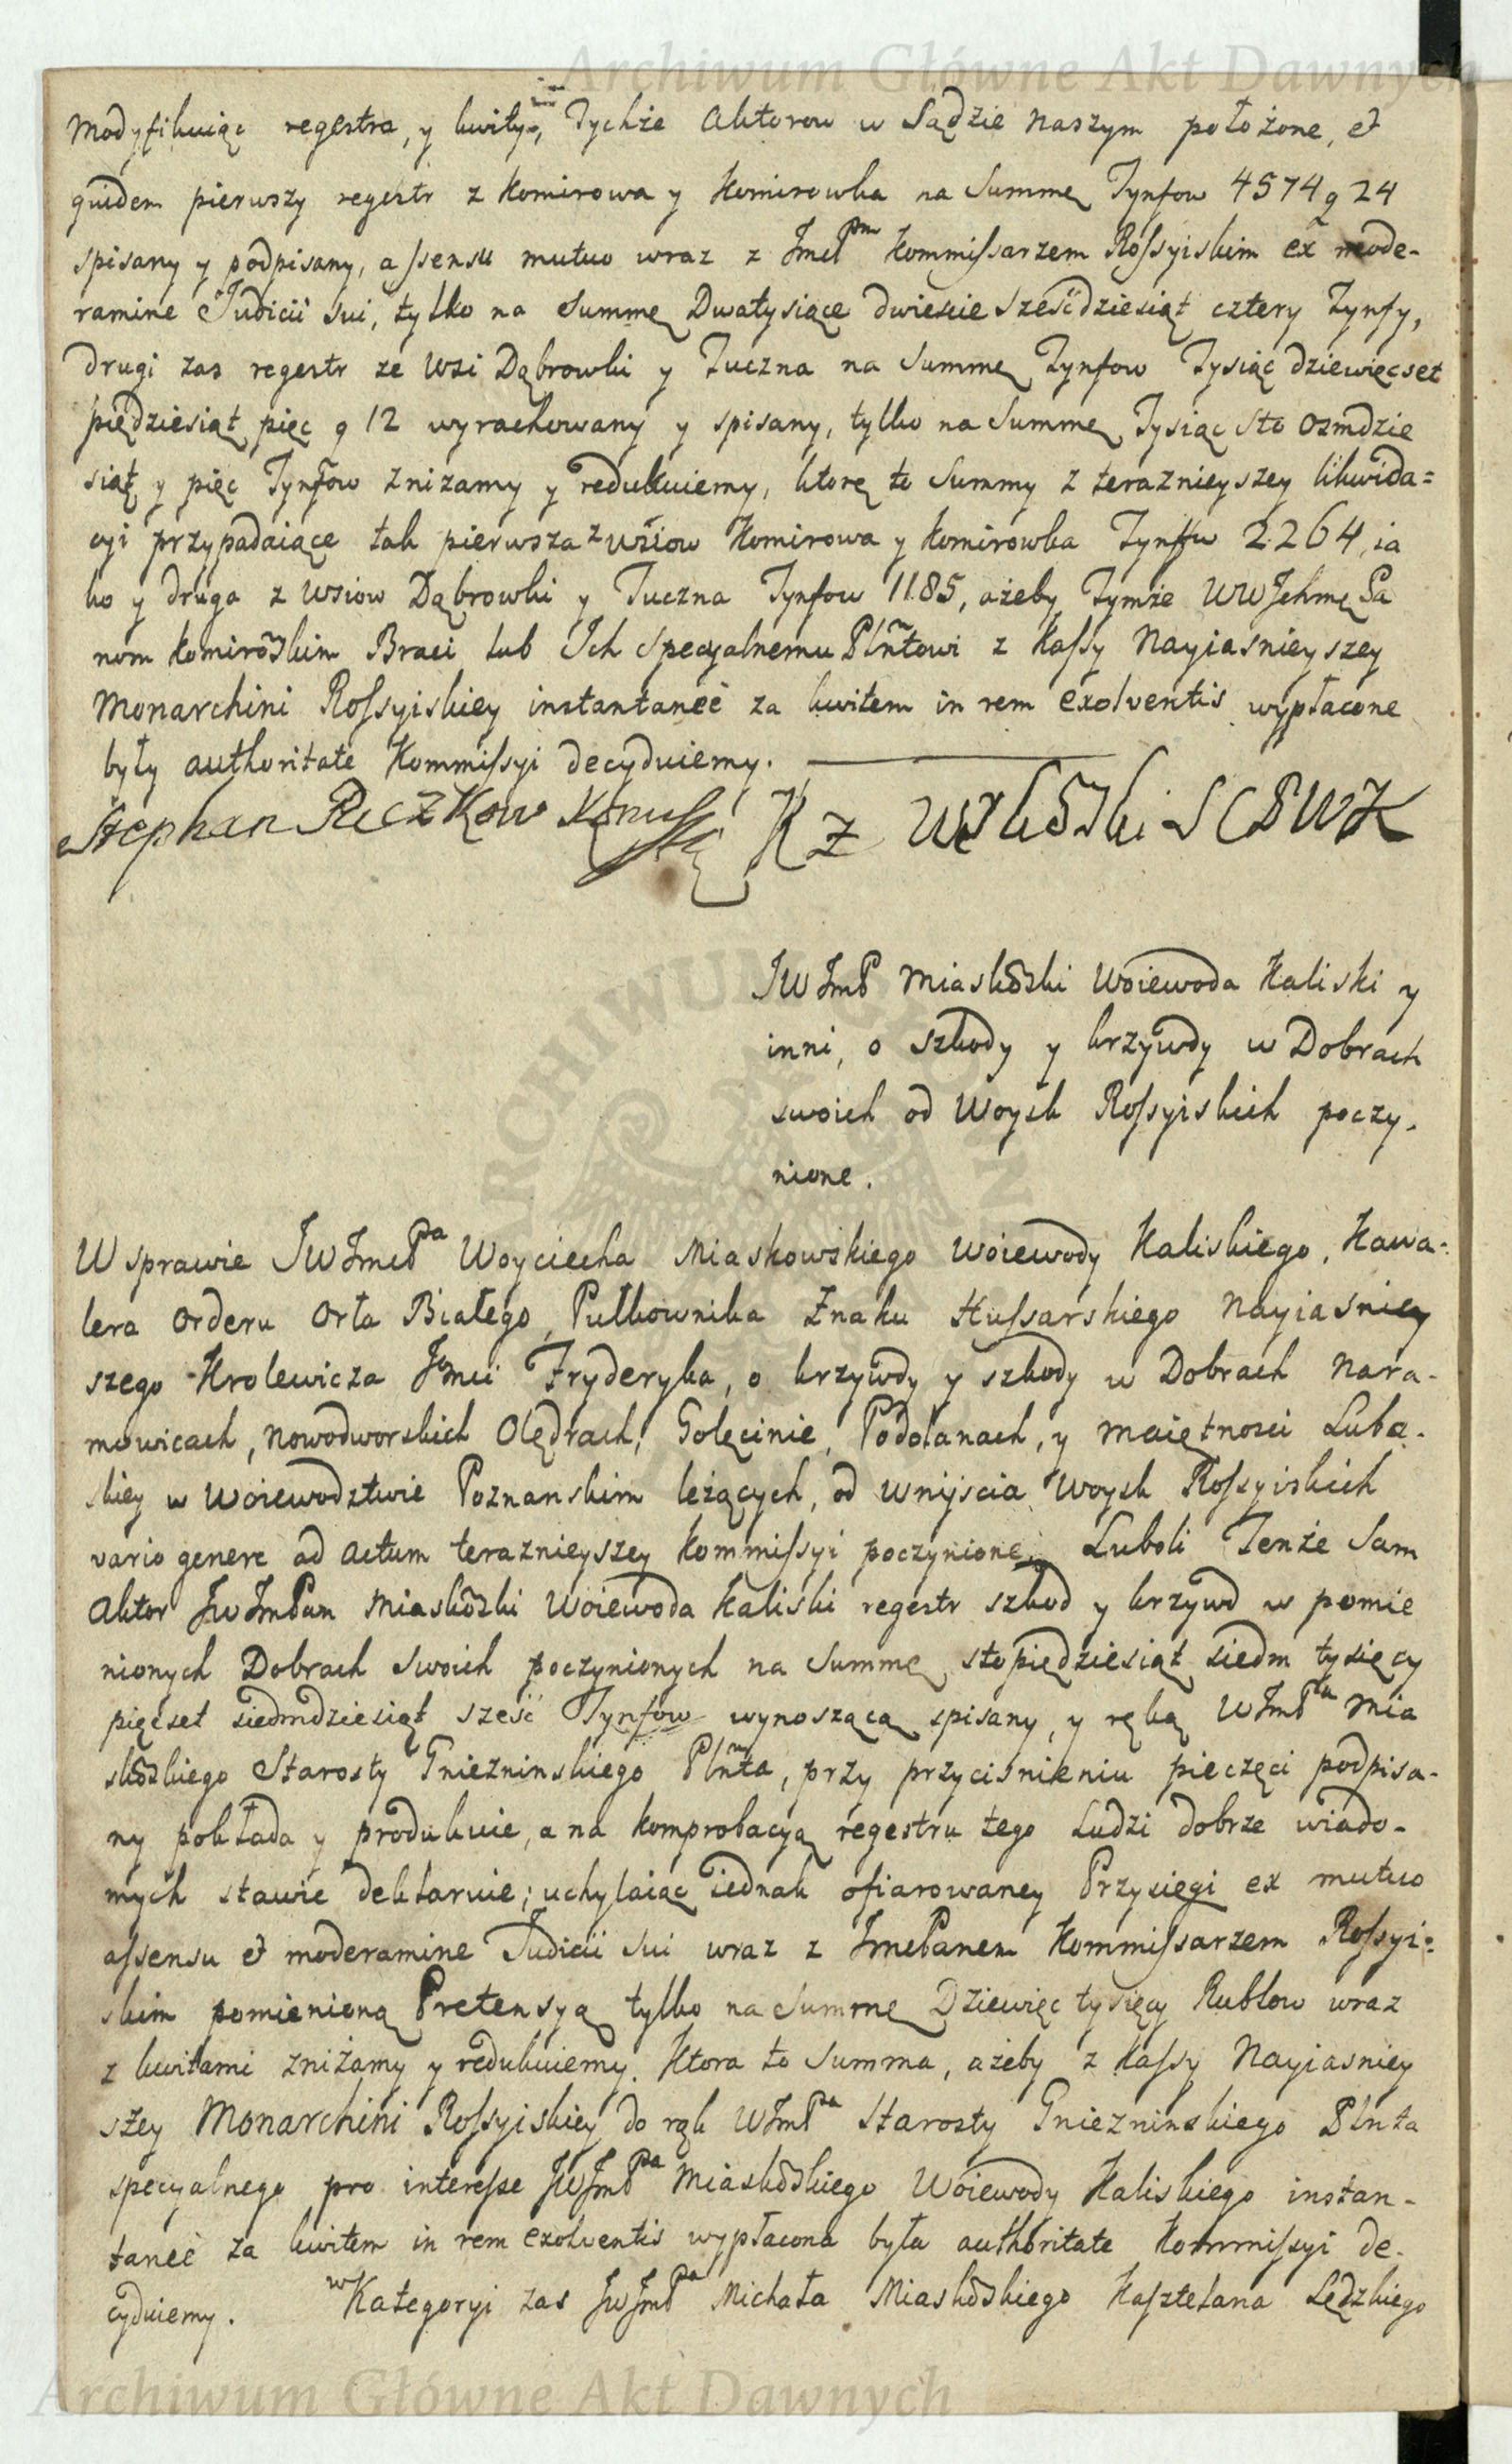 Archiwum Główne Akt Dawnych
modyfikuiąc regestra, y kwity, Tychże Aktorow w Sądzie Naszym położone, et
quidem pierwszy regestr z Komirowa y Komirowka na Summę Tynfow 4574 g 24
spisany y podpisany, assensu mutuo wraz z JmcP Kommissarzem Rossyiskim ex mode-
ramine Judicii sui, tylko na Summę Dwatysiące dwieście sześćdziesiąt cztery tynfy,
drugi zas regestr ze Wsi Dąbrowki y Tuczna na Summę Tynfow Tysiąc dziewięcset
piędziesiąt pięc g 12 wyrachowany y spisany, tylko na Summę Tysiąc sto ozmdzie
siąt y pięc Tynfow znizamy y redukuiemy, ktore to Summy z terazniey szey likwida=
cyi przypadaiące tak pierwsza z wsiow Komirowa y Komirowka Tynfow 2264, ia
ko y druga z wsiow Dąbrowki y Tuczna Tynfow 1185, ażeby Tymże WWJchmę Pa
nom Komirowskim Braci lub Ich Specyalnemu Plntowi z Kassy Nayiasnieyszey
Monarchini Rossyiskiey instantaneè za kwitem in rem exolventis wypłacone
były authoritate Kommissyi decyduiemy.
Stephan Peczkow K Z SCBWK
JW JmP Miaskowski Woiewoda Kaliski y
inni, o szkody y krzywdy w Dobrach
swoich od Woysk Rossyiskich poczy-
nione.
W sprawie JWJmcPpa Woyciecha Miaskowskiego Woiewody Kaliskiego, Kawa-
lera Orderu Orła Białego, Pułkownika Znaku Hussarskiego Nayiasniey
szego Krolewicza Jmci Fryderyka, o krzywdy y szkody w Dobrach Nara-
mowicach, Nowodworskich Olędrach, Golęcinie, Podolanach, y Maiętnosci Luba-
skiey w Woiewodztwie Poznanskim leżących, od wniyscia Woysk Rossyiskich
vario genere ad actum terazniey szey Kommissyi poczynione, Luboli Tenże Sam
Aktor JWJmPan Miaskowski Woiewoda Kaliski regestr szkod y krzywd w pomie
nionych Dobrach swoich poczynionych na Summę sto pięдziesiąt siedm tysięcy
pięcset siedmdziesiąt sześć Tynfow wynoszącą spisany, y ręką WJmPa Mia
skowskiego Starosty Gniezninskiego Plnta, przy przyciśnieniu pieczęci podpisa-
ny pokłada y produkuie, a na komprobacyą regestru tego Ludzi dobrze wiado-
mych stawic deklaruie; uchylaiąc iednak ofiarowaney Przysięgi ex mutuo
assensu et moderamine Judicii sui wraz z JmcPanem Kommissarzem Rossyi=
skim pomienioną Pretensyą tylko na Summę Dziewięc tysięcy Rublow wraz
z kwitami zniżamy y redukuiemy. Ktora to Summa, ażeby z Kassy Nayiasniey
szey Monarchini Rossyiskiey do rąk WJmPa Starosty Gniezninskiego Plnta
specyalnego pro interesse JWJmPpa Miaskowskiego Woiewody Kaliskiego instan-
taneè za kwitem in rem exolventis wypłacona była authoritate Kommissyi de-
cyduiemy. w Kategoryi zas JWJmPpa Michała Miaskowskiego Kasztelana Lędzkiego
Archiwum Główne Akt Dawnych